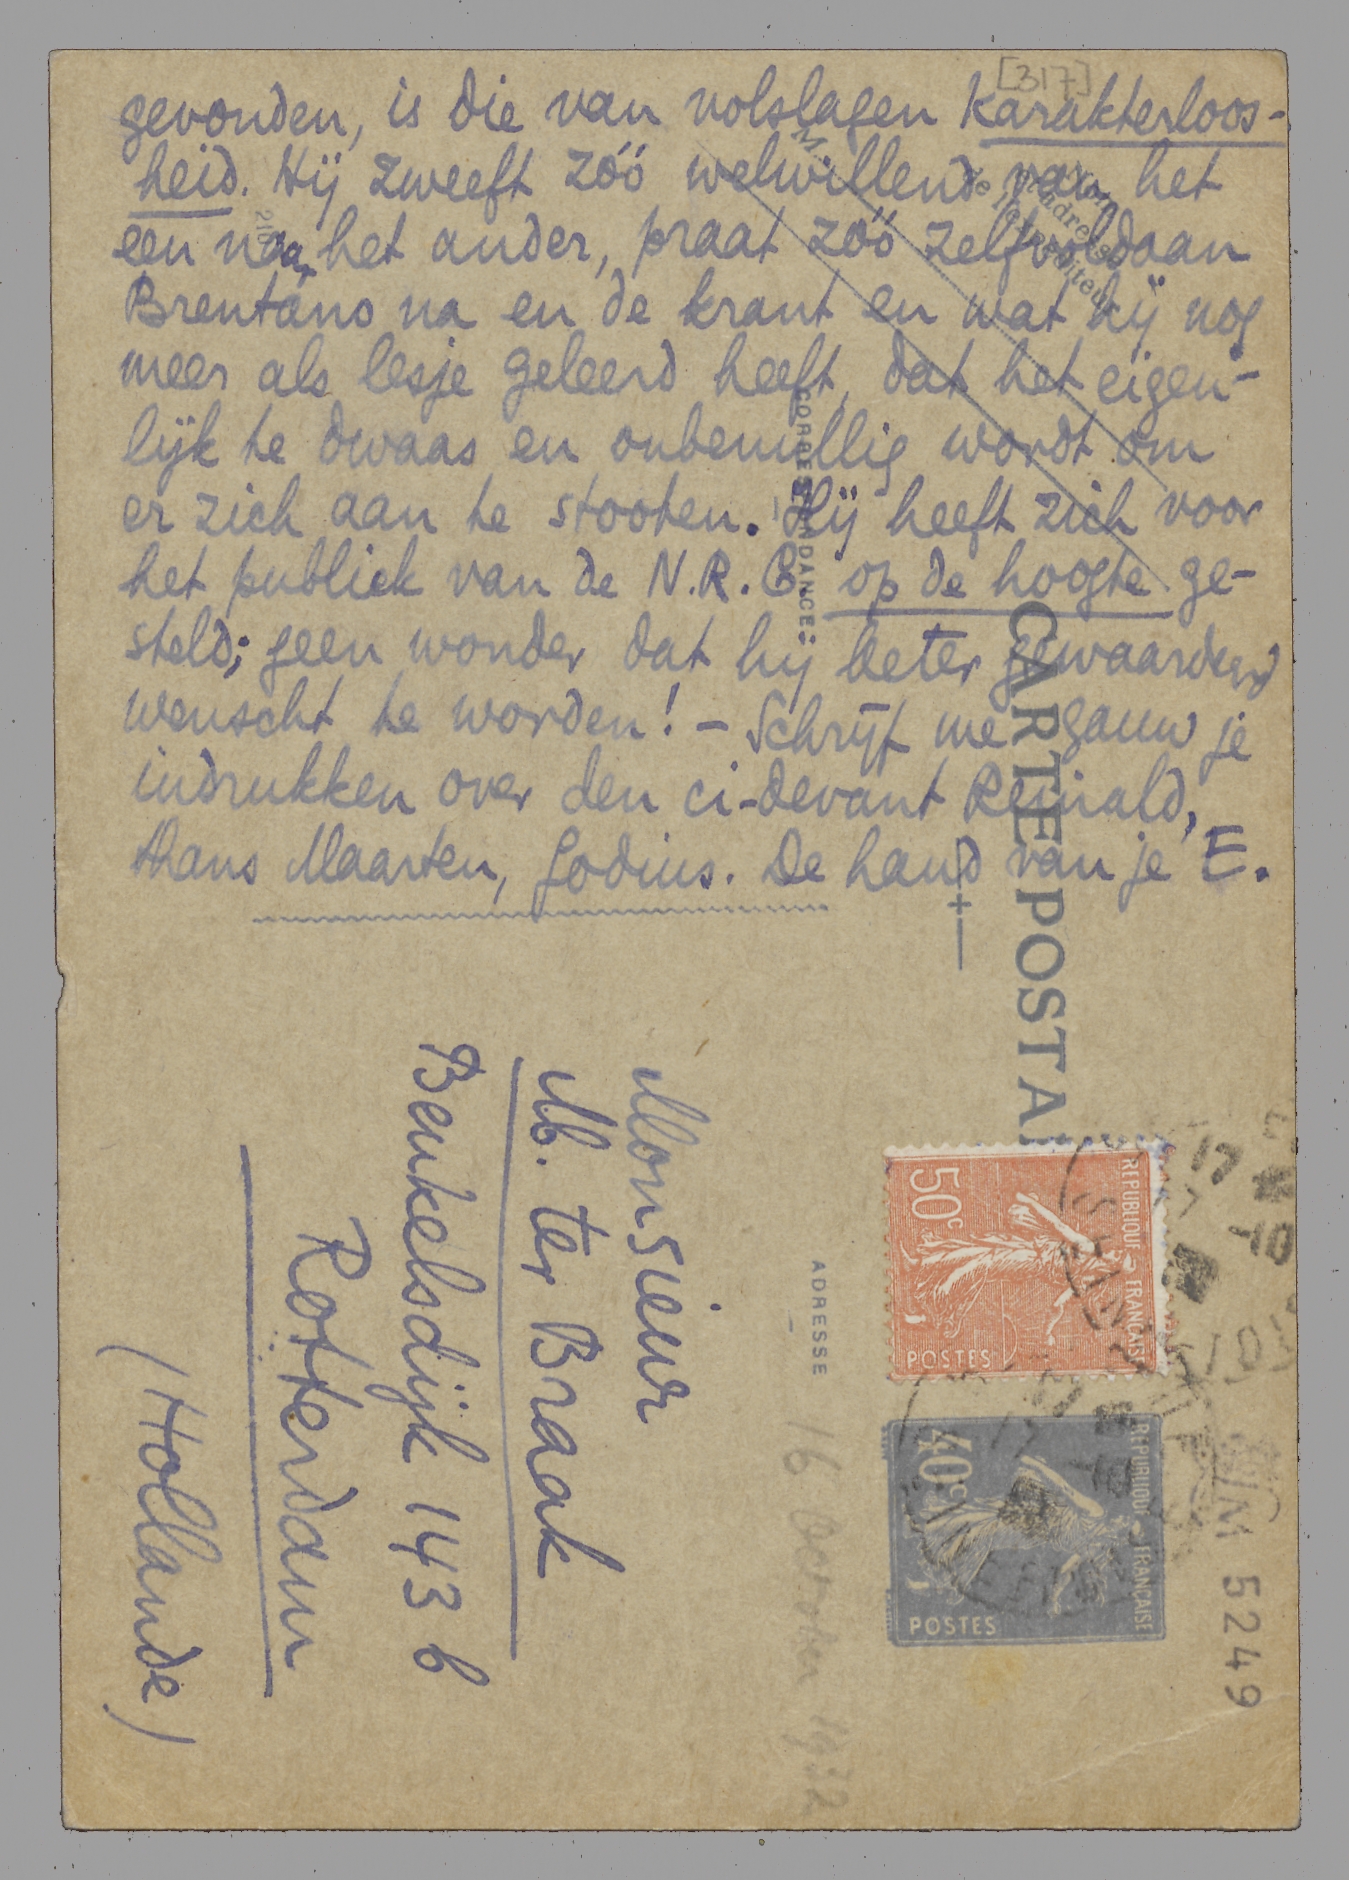 [317]
gevonden, is die van volslagen karakterloos-
heid. Hij zweeft zóó welwillend van het
een naar het ander, praat zóó zelfvoldaan
Brentano na en de krant en wat hij nog
meer als lesje geleerd heeft, dat het eigen-
lijk te dwaas en onbenullig wordt om
er zich aan te stooten. Hij heeft zich voor
het publiek van de N.R.C. op de hoogte ge-
steld; geen wonder dat hij beter gewaardeerd
wenscht te worden! – Schrijf me gauw je
indrukken over den ci-devant Reinald,
Hans Maarten, Godius. De hand van je E.
CARTE POSTA
CORRESPONDANCE
ADRESSE
Monsieur
M. ter Braak
Beukelsdijk 143 b
Rotterdam
(Hollande)
16 October 1932
REPUBLIQUE FRANÇAISE
50c
POSTES
REPUBLIQUE FRANÇAISE
40c
POSTES
17
10
M 5249